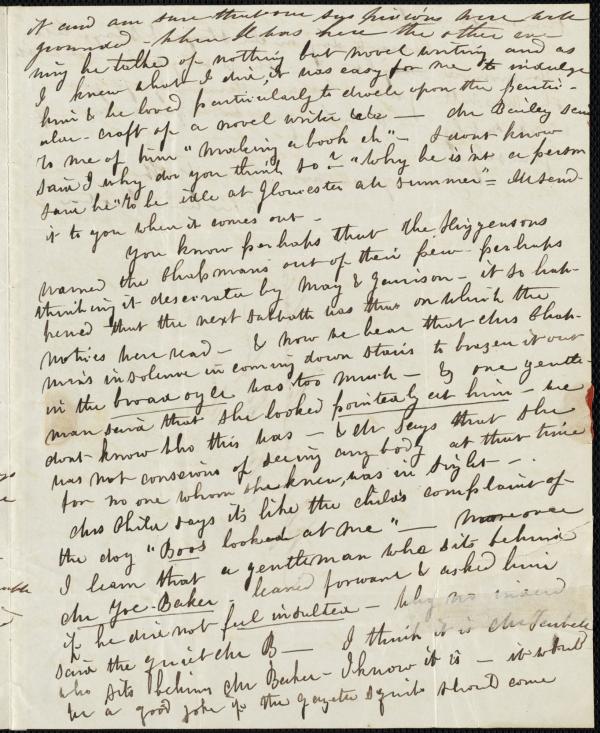 it and am sure that our suspicions were well
grounded - When he was here the other eve-
ning he talked of nothing but novel writing and as
I knew what I did, it was easy for me to indulge
him & he loved particularly to dwell upon the particu-
lar craft of a novel writer &c — Mr Bailey said
to me of him "making a book eh" - I dont know
said I why do you think so? - "Why he isn't a person
said he "to be idle at Gloucester all summer" - Ill send
it to you when it comes out -
You know perhaps that the Higgensons
warned the Chapmans out of their pew - perhaps
thinking it desecrated by May & Garrison - it so hap-
pened that the next sabbath was that on which the
notices were read - & now we hear that Mrs Chap-
man's insolence in coming down stairs to brazen it out
in the broad aisle was too much - & one gentle-
man said that she looked pointedly at him - we
dont know who this was - & M says that she
was not conscious of seeing any body at that time
for no one whom she knew, was in sight -
Mrs Child says its like the child's complaint of
the dog "Boos looked at me" — Moreover
I learn that a gentleman who sits behind
Mr Joe Baker - leaned forward & asked him
if he did not feel insulted - Why no indeed
said the quiet Mr B — I think it is Mr
who sits behind Mr Baker - I know it is - it would
be a good joke if the gazette squib should come